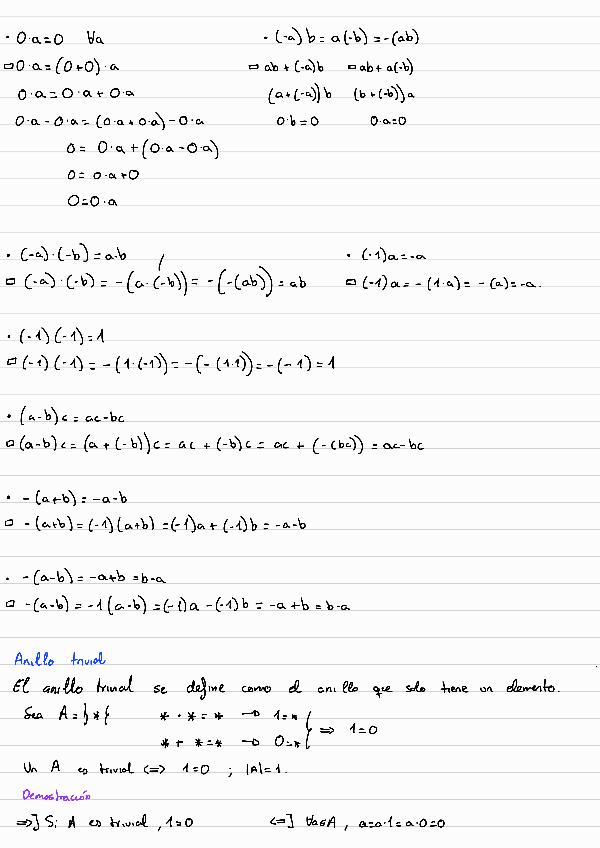 · 0·a=0 ∀a
▭ 0·a=(0+0)·a
0·a=0·a+0·a
0·a-0·a=(0·a+0·a)-0·a
0= 0·a+(0·a-0·a)
0= 0·a+0
0=0·a
· (-a)b=a(-b)=-(ab)
▭ ab+(-a)b ▭ ab+a(-b)
(a+(-a))b (b+(-b))a
0·b=0 0·a=0
· (-a)·(-b)=a·b
▭ (-a)·(-b)=-(a·(-b))=-(-(ab))=ab
· (-1)a=-a
▭ (-1)a=-(1·a)=-(a)=-a.
· (-1)(-1)=1
▭ (-1)(-1)=-(1·(-1))=-(-(1·1))=-(-1)=1
· (a-b)c=ac-bc
▭ (a-b)c=(a+(-b))c=ac+(-b)c=ac+(-(bc))=ac-bc
· -(a+b)=-a-b
▭ -(a+b)=(-1)(a+b)=(-1)a+(-1)b=-a-b
· -(a-b)=-a+b=b-a
▭ -(a-b)=-1(a-b)=(-1)a-(-1)b=-a+b=b-a
Anillo trivial
El anillo trivial se define como el anillo que solo tiene un elemento.
Sea A={*} *·*=* → 1=*
*+*=* → 0=* } ⇒ 1=0
Un A es trivial <=> 1=0 ; |A|=1.
Demostración
=>] Si A es trivial, 1=0 <=] ∀a∈A, a=a·1=a·0=0